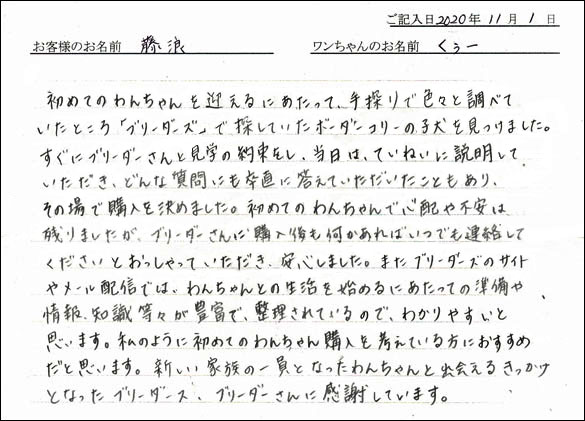 ご記入日 2020年 11月 1日
お客様のお名前 藤浪 ワンちゃんのお名前 くぅー
初めてのわんちゃんを迎えるにあたって、手探りで色々と調べて
いたところ「ブリーダーズ」で探していたボーダーコリーの子犬を見つけました。
すぐにブリーダーさんと見学の約束をし、当日は、ていねいに説明して
いただき、どんな質問にも率直に答えていただいたこともあり、
その場で購入を決めました。初めてのわんちゃんで心配や不安は
残りましたが、ブリーダーさんに購入後も何かあればいつでも連絡して
くださいとおっしゃっていただき、安心しました。またブリーダーズのサイト
やメール配信では、わんちゃんとの生活を始めるにあたっての準備や
情報、知識等々が豊富で、整理されているので、わかりやすいと
思います。私のように初めてのわんちゃん購入を考えている方におすすめ
だと思います。新しい家族の一員となったわんちゃんと出会えるきっかけ
となったブリーダース、ブリーダーさんに感謝しています。